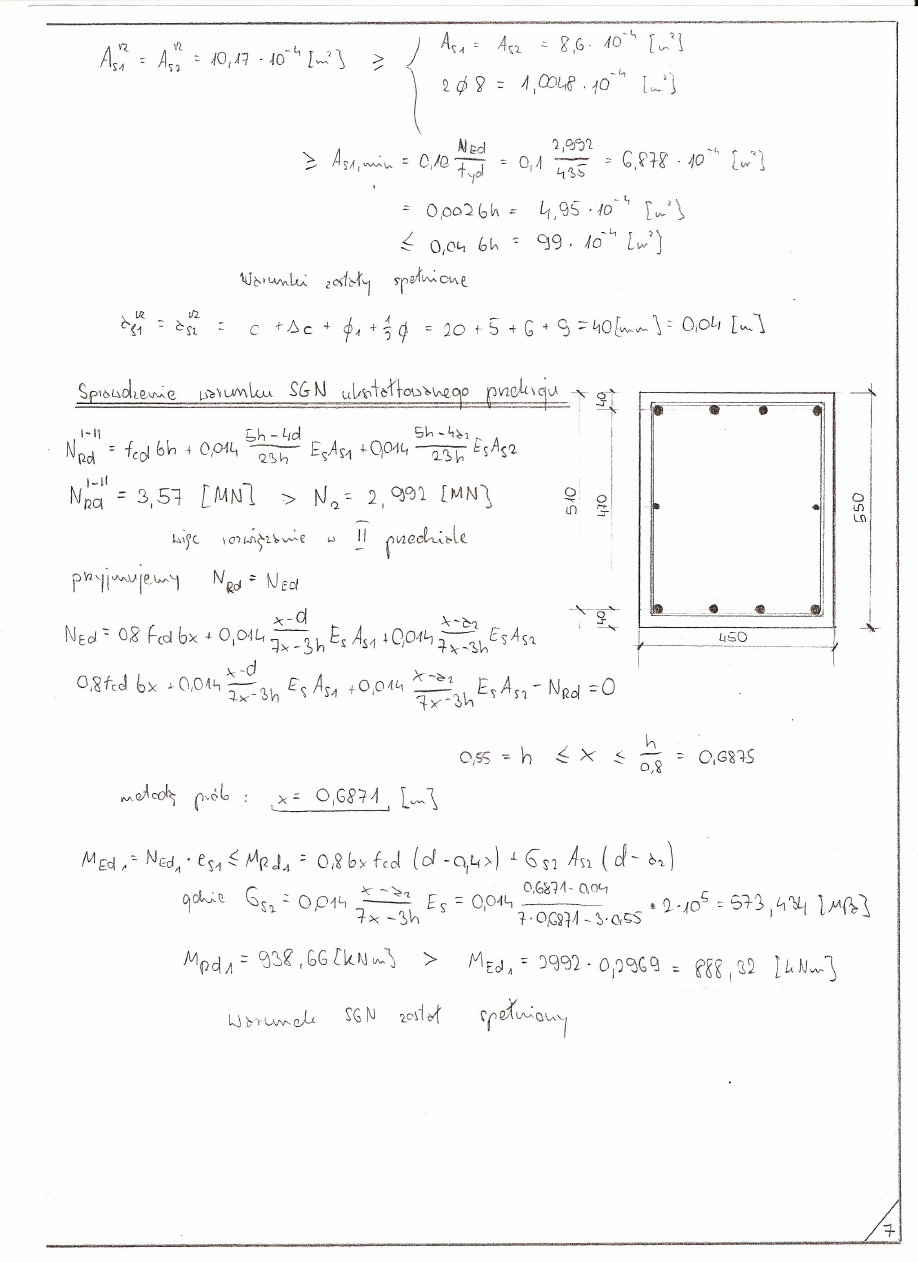 A_s1^rz = A_s2^rz = 10,17 · 10⁻⁴ [m²] ≥ { A_s1 = A_s2 = 8,6 · 10⁻⁴ [m²]
2 ϕ 8 = 1,0048 · 10⁻⁴ [m²]
≥ A_s1,min = 0,10 N_Ed/f_yd = 0,1 2,992/435 = 6,878 · 10⁻⁴ [m²]
= 0,002 bh = 4,95 · 10⁻⁴ [m²]
≤ 0,04 bh = 99 · 10⁻⁴ [m²]
Warunki zostały spełnione
a_s1^rz = a_s2^rz = c + Δc + ϕ₁ + ½ϕ = 20 + 5 + 6 + 9 = 40 [mm] = 0,04 [m]
Sprawdzenie warunku SGN ukształtowanego przekroju
N_Rd^I-II = fcd bh + 0,014 (5h-4d)/(23h) E_s A_s1 + 0,014 (5h-4a₂)/(23h) E_s A_s2
N_Rd^I-II = 3,57 [MN] > N₂ = 2,992 [MN]
więc rozwiązanie w II przedziale
przyjmujemy N_Rd = N_Ed
N_Ed = 0,8 fcd bx + 0,014 (x-d)/(7x-3h) E_s A_s1 + 0,014 (x-a₂)/(7x-3h) E_s A_s2
0,8 fcd bx + 0,014 (x-d)/(7x-3h) E_s A_s1 + 0,014 (x-a₂)/(7x-3h) E_s A_s2 - N_Rd = 0
40
510
470
40
550
450
0,55 = h ≤ x ≤ h/0,8 = 0,6875
metodą prób : x = 0,6871 [m]
M_Ed1 = N_Ed1 · e_s1 ≤ M_Rd1 = 0,8 bx fcd (d - 0,4x) + σ_s2 A_s2 (d - a₂)
gdzie σ_s2 = 0,014 (x-a₂)/(7x-3h) E_s = 0,014 (0,6871-0,04)/(7·0,6871-3·0,55) · 2·10⁵ = 573,434 [MPa]
M_Rd1 = 938,66 [kNm] > M_Ed1 = 2992 · 0,2969 = 888,32 [kNm]
Warunek SGN został spełniony
7